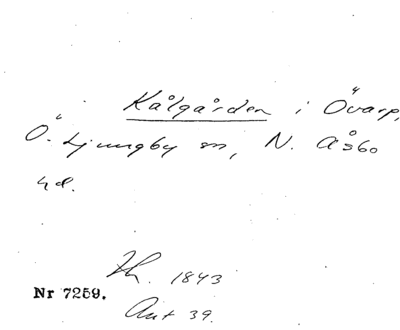 Kålgården i Övarp,
Ö. Ljungby sn, N. Åsbo
hd.
Th. 1843
Nr 7259.
Ant 39.